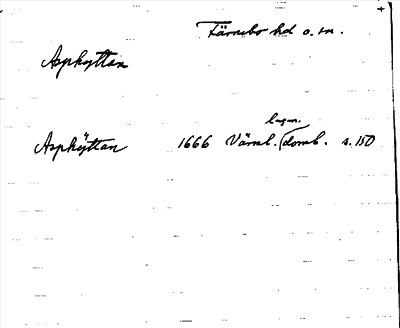 Färnebo hd o. sn.
Asphyttan
Asphÿttan 1666 Värml. lagm. domb. s. 150